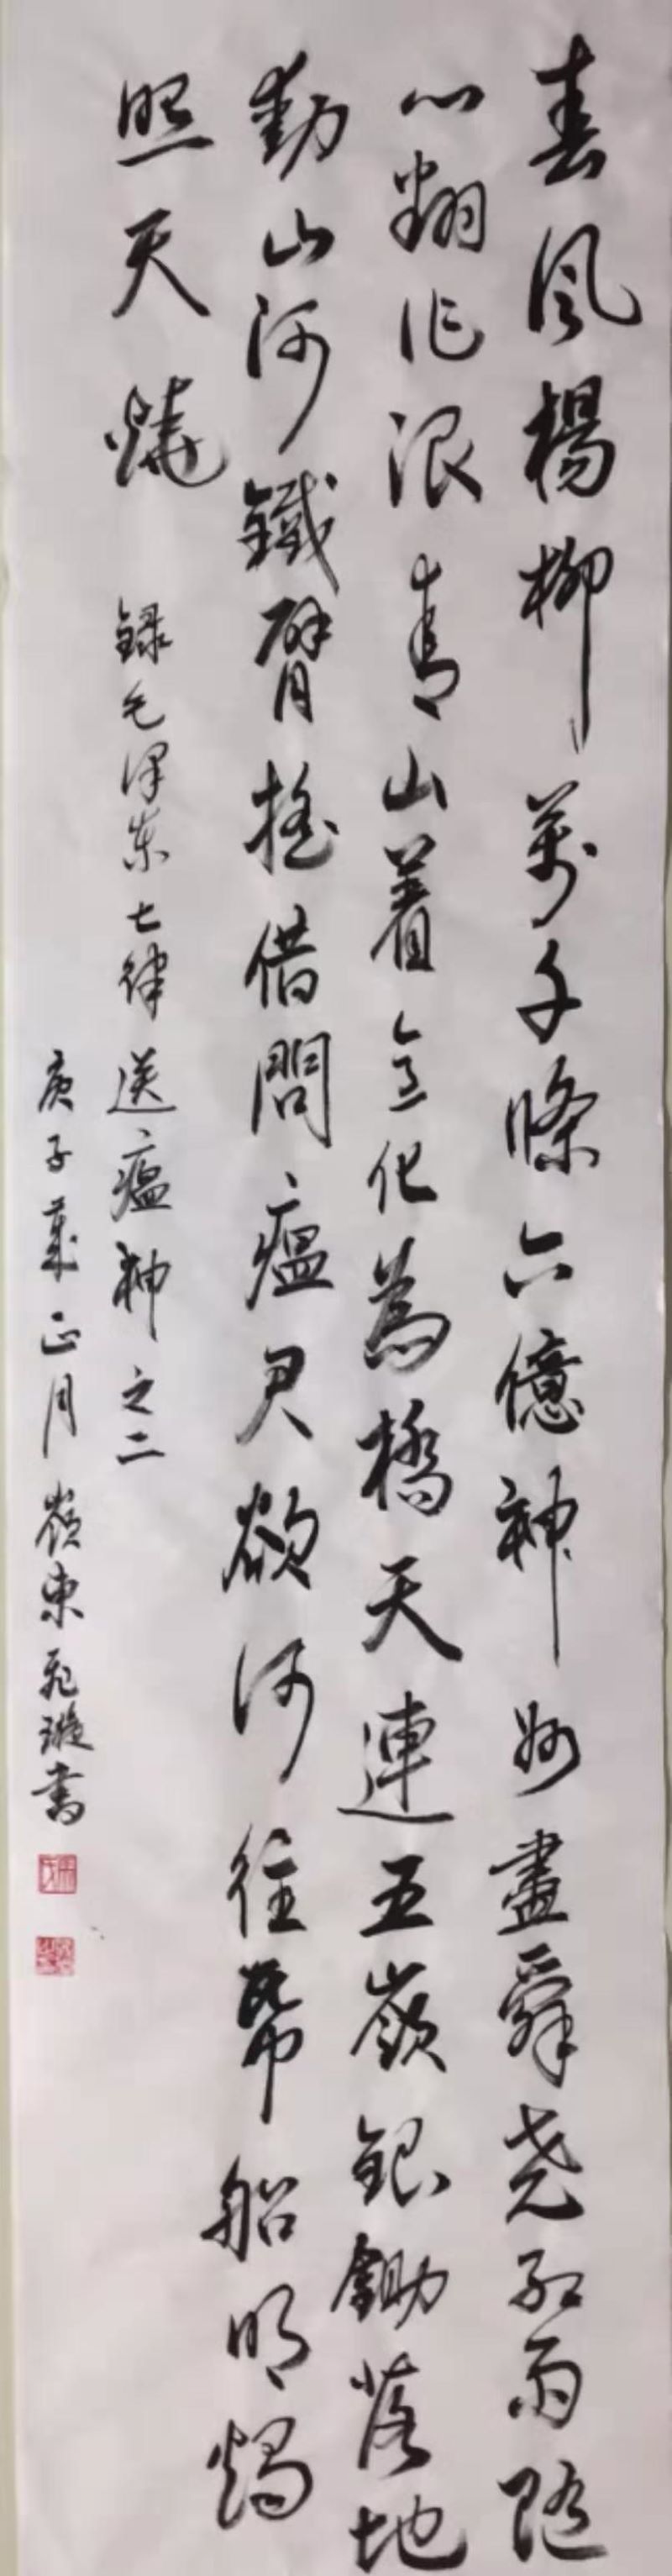 春風楊柳萬千條六億神州盡舜堯紅雨随
心翻作浪青山着意化為橋天連五嶺銀鋤落地
動山河鐵臂摇借問瘟君欲何往帋船明燭
照天燒
錄毛泽东七律送瘟神之二
庚子歲正月嶺東
書